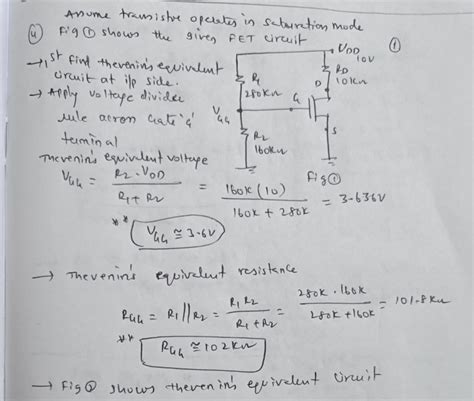 Assume transistor operates in saturation mode
④ Fig ① shows the given FET circuit
→ 1st find thevenin's equivalent
circuit at i/p side.
→ Apply voltage divider
rule across Gate 'G'
terminal
Thevenin's equivalent voltage
①
VDD
10V
RD
10kΩ
R1
280kΩ
D
G
VGG
S
R2
160kΩ
Fig ①
VGG = R2 · VDD / R1 + R2 = 160k (10) / 160k + 280k = 3.636V
** VGG ≅ 3.6V
→ Thevenin's equivalent resistance
RGG = R1 || R2 = R1 R2 / R1 + R2 = 280k · 160k / 280k + 160k = 101.8kΩ
** RGG ≅ 102kΩ
→ Fig ② shows thevenin's equivalent circuit